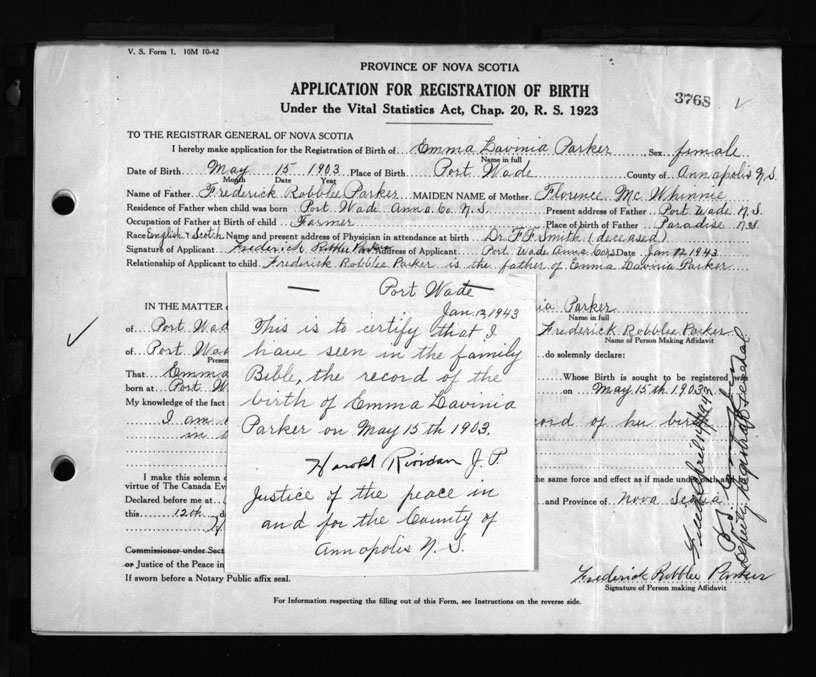 V. S. Form 1. 10M 10-42
PROVINCE OF NOVA SCOTIA
APPLICATION FOR REGISTRATION OF BIRTH
3768 ✓
Under the Vital Statistics Act, Chap. 20, R. S. 1923
TO THE REGISTRAR GENERAL OF NOVA SCOTIA
I hereby make application for the Registration of Birth of Emma Lavinia Parker Sex female
Name in full
Date of Birth May 15 1903 Place of Birth Port Wade County of Annapolis N.S
Month Date Year
Name of Father Frederick Robblee Parker MAIDEN NAME of Mother Florence McWhinnie
Residence of Father when child was born Port Wade Anna Co. N.S. Present address of Father Port Wade N.S.
Occupation of Father at Birth of child Farmer Place of Birth of Father Paradise N.S
Race English & Scotch Name and present address of Physician in attendance at birth Dr. F. F. Smith (deceased)
Signature of Applicant Frederick Robblee Parker Address of Applicant Port Wade Anna Co NS Date Jan 12 1943
Relationship of Applicant to child Frederick Robblee Parker is the father of Emma Lavinia Parker
Port Wade
Jan 12, 1943
This is to certify that I
have seen in the family
Bible, the record of the
birth of Emma Lavinia
Parker on May 15th 1903.
Harold Riordan J. P.
Justice of the peace in
and for the County of
Annapolis N. S.
IN THE MATTER nia Parker
Name in full
of Port Wad Frederick Robblee Parker
Name of Person Making Affidavit
of Port Wa do solemnly declare:
Presen
That Emma Whose Birth is sought to be registered was
born at Port W on May 15th 1903
My knowledge of the fact
I am ord of her birth
in
I make this solemn d the same force and effect as if made under oath and
virtue of The Canada Ev
Declared before me at and Province of Nova Scotia
this 12th d
Commissioner under Sect
or Justice of the Peace in Frederick Robblee Parker
If sworn before a Notary Public affix seal. Signature of Person making Affidavit
For Information respecting the filling out of this Form, see Instructions on the reverse side.
Filed April 14 1943
Deputy Registrar General